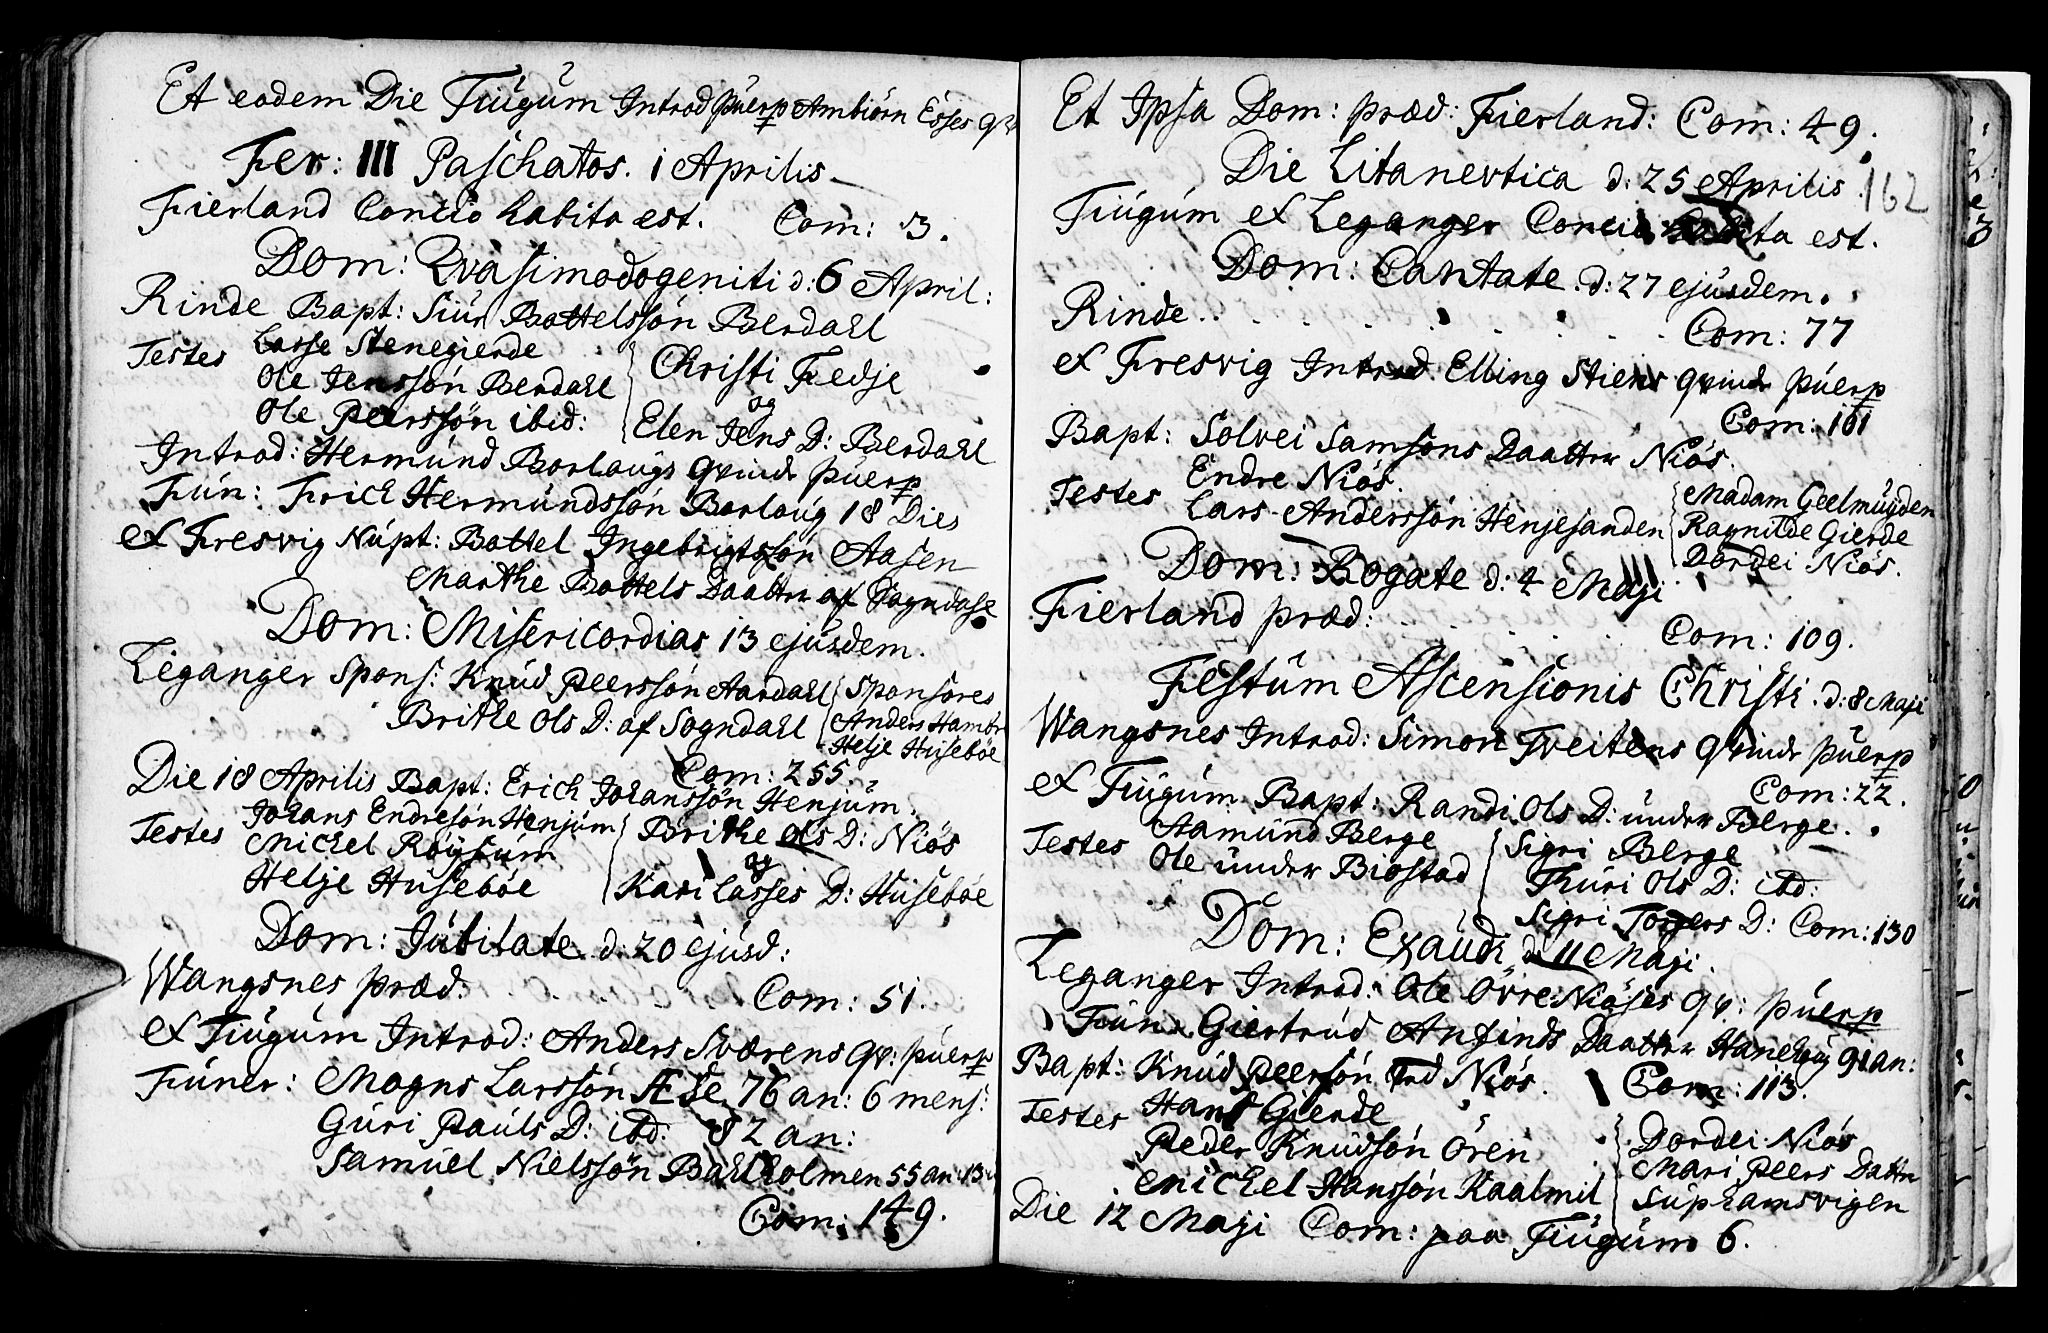 Et eodem Die Fiúgúm Introd púerp Ambiörn Esses qv
Fer: III Paschatos. 1 Aprilis
Fierland Concio habita est. Com: 3.
Dom: Qvasimodogeniti d: 6 April:
Rinde Bapt: Siúr Bottelssön Berdahl
Testes Lasse Stenegierde
Ole Jenssön Berdahl
Ole Peerssön ibid:
Christi Fedje
og
Elen Jens D: Berdahl
Introd: Hermúnd Borlaúgs qvinde púerp
Fún: Frich Hermúndssön Borlaúg 18 Dies
et Fresvig Núpt: Bottel Ingebrigtssön Aasen
Marthe Bottels Daatter af Sogndahl
Dom: Misericordias 13 ejúsdem.
Leganger Spons: Knúd Peerssön Aardahl
Brithe Ols D: af Sogndahl
Sponsores
Anders Hamre
Helje Húseböe
Com: 255.
Die 18 Aprilis Bapt: Erich Johanssön Henjúm
Testes Johans Endresön Henjúm
Michel Röysúm
Helje Húseböe
Brithe Ols D: Niös
og
Kari Lasses D: Húseböe
Dom: Júbilate d: 20 ejúsd:
Wangsnes præd: Com: 51.
et Fiúgúm Introd: Anders Sværens qv: púerp
Fúner: Mogns Larssön Æse 76 an: 6 mens:
Gúri Paúls D: ibd: 82 an:
Samúel Nielssön Bahlholmen 55 an: 13
Com: 149.
Et Ipsa Dom: præd: Fierland: Com: 49.
Die Litanevtica d: 25 Aprilis.
162
Fiúgúm et Leganger Concio habita est.
Dom: Cantate d: 27 ejúsdem.
Rinde . . . . . . . Com: 77
et Fresvig Introd. Elling Stiens qvinde púerp
Com: 101
Bapt: Solvei Samsons Daatter Niös.
Testes Endre Niös.
Lars Anderssön Henjesanden
Madam Geelmúyden
Ragnilde Gierde
Dordei Niös.
Dom: Rogate d: 4 Maji
Fierland præd: . . . . . Com: 109.
Festúm Ascensionis Christi. d: 8 Maji
Wangsnes Introd: Simon Tveitens qvinde púerp
Com: 22.
et Fiúgúm Bapt: Randi Ols D: únder Berge.
Testes Aamúnd Berge
Ole únder Biöstad
Sigri Berge
Thúri Ols D: ibd:
Sigri Torgers D: Com: 130
Dom: Exaúdi d: 11 Maji.
Leganger Introd: Ole Övre Niöses qv: púerp
Fún: Giertrúd Anfinds Daatter Hanehoúg 91 an:
Bapt: Knúd Peersön Niös. Com: 113.
Testes Hans Gierde
Peder Knúdsön Ören
Michel Hanssön Kaalmil
Dordei Niös
Mari Peers Dattr
Suphamsvigen
Die 12 Maji Com: paa Fiúgúm 6.